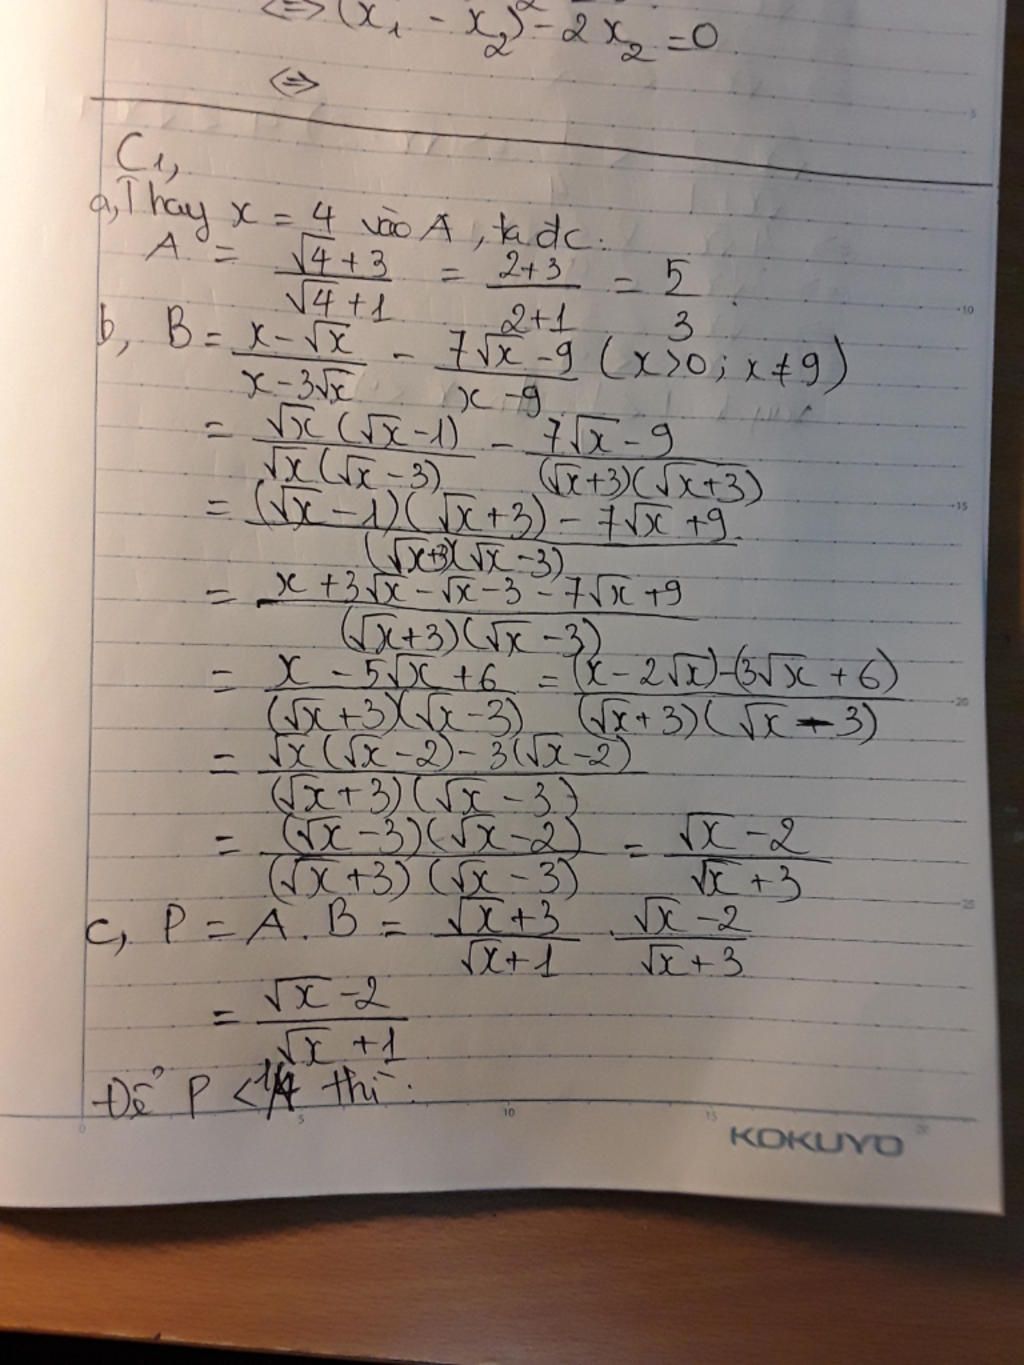 <=> (x₁ - x₂)² - 2x₂ = 0
<=>
C1,
a, Thay x = 4 vào A, ta đc:
A = (√4 + 3)/(√4 + 1) = (2+3)/(2+1) = 5/3.
b, B = (x - √x)/(x - 3√x) - (7√x - 9)/(x - 9) (x>0; x ≠ 9)
= (√x(√x - 1))/(√x(√x - 3)) - (7√x - 9)/((√x+3)(√x+3))
= ((√x - 1)(√x + 3) - 7√x + 9)/((√x+3)(√x - 3))
= (x + 3√x - √x - 3 - 7√x + 9)/((√x+3)(√x - 3))
= (x - 5√x + 6)/((√x+3)(√x - 3)) = ((x - 2√x) - (3√x + 6))/((√x+3)(√x - 3))
= (√x(√x - 2) - 3(√x - 2))/((√x+3)(√x - 3))
= ((√x - 3)(√x - 2))/((√x+3)(√x - 3)) = (√x - 2)/(√x + 3)
c, P = A . B = (√x + 3)/(√x + 1) . (√x - 2)/(√x + 3)
= (√x - 2)/(√x + 1)
Để P < 1/4 thì:
5 10 15 20
KOKUYO